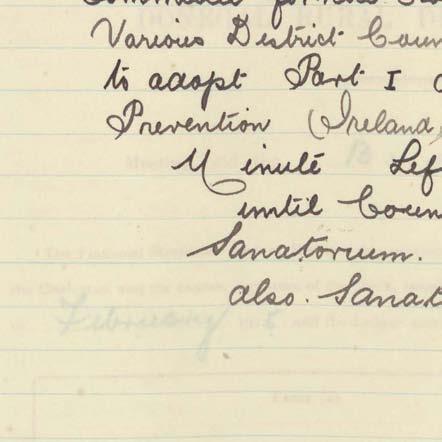 Various District Coun
to adopt Part I
Prevention (Ireland)
Minute Lef
until Coun
Sanatorium.
also. Sanat
February